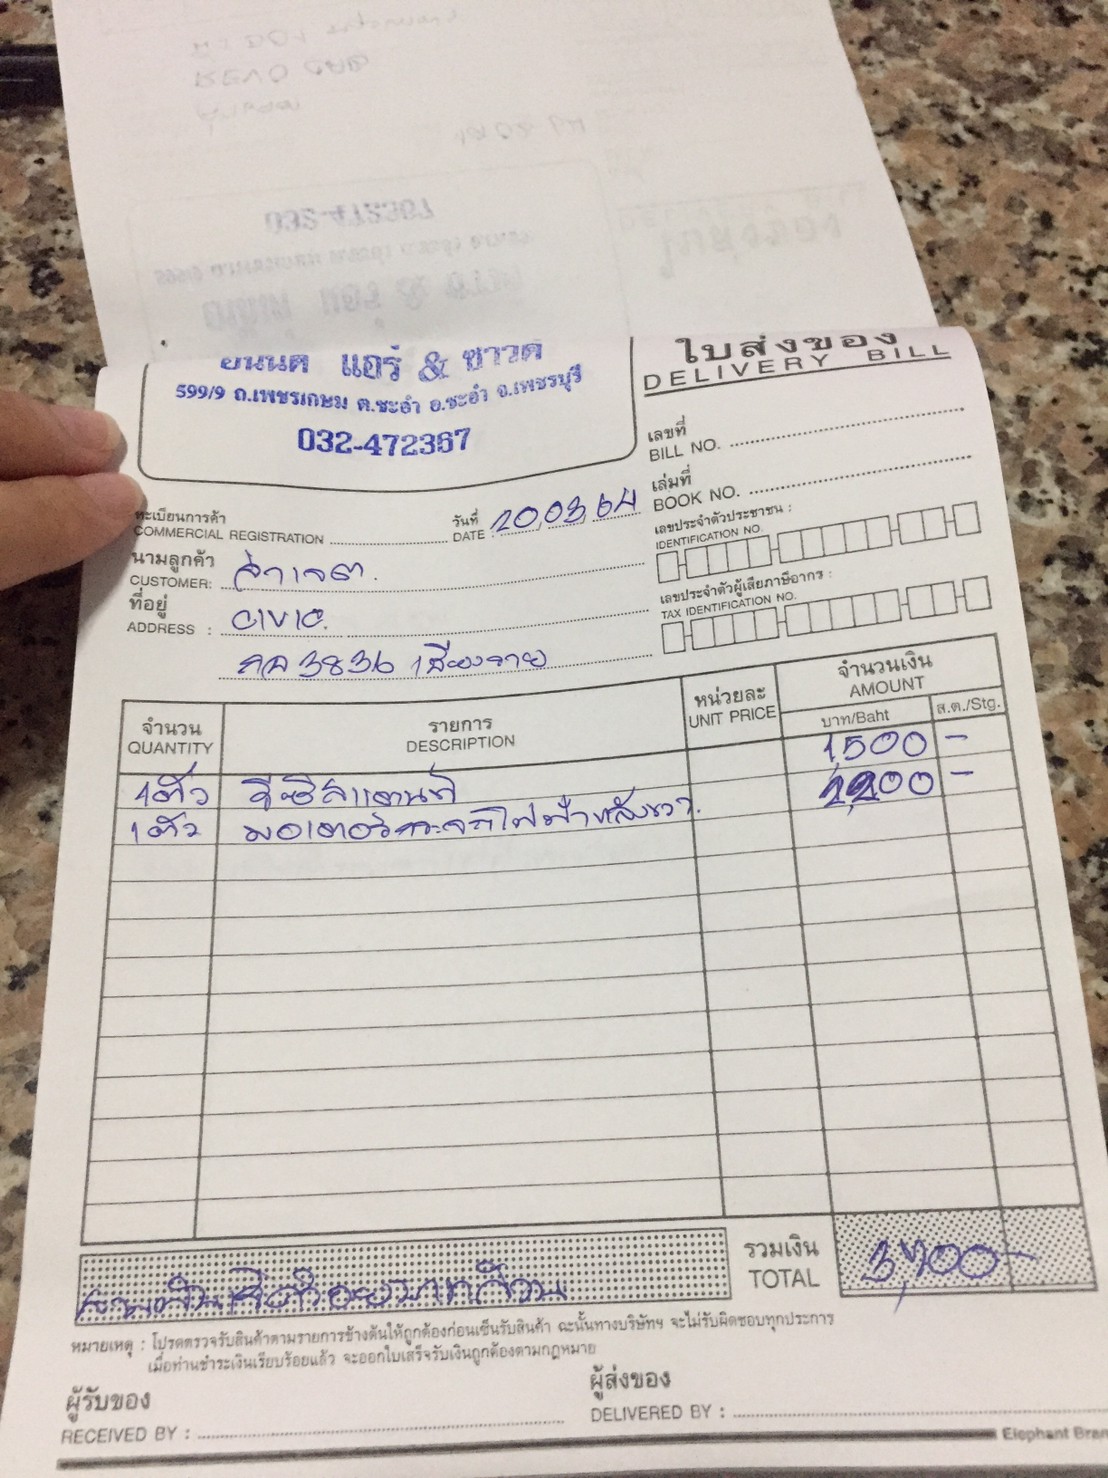 ใบส่งของ
DELIVERY BILL
ยนนต์ แอร์ & ซาวด์
599/9 ถ.เพชรเกษม ต.ชะอำ อ.ชะอำ จ.เพชรบุรี
032-472367
เลขที่
BILL NO.
เล่มที่
BOOK NO.
ทะเบียนการค้า
COMMERCIAL REGISTRATION
วันที่
DATE : 20, 03, 64
เลขประจำตัวประชาชน :
IDENTIFICATION NO.
นามลูกค้า
CUSTOMER:
ที่อยู่
ADDRESS : CIVIC.
3836 เชียงราย
เลขประจำตัวผู้เสียภาษีอากร :
TAX IDENTIFICATION NO.
จำนวน
QUANTITY
รายการ
DESCRIPTION
หน่วยละ
UNIT PRICE
จำนวนเงิน
AMOUNT
บาท/Baht
ส.ต./Stg.
1,500 -
1ตัว มอเตอร์กระจกไฟฟ้าหลังขวา. 2,200 -
รวมเงิน
TOTAL
3,700 -
สามพันเจ็ดร้อยบาทถ้วน
หมายเหตุ : โปรดตรวจรับสินค้าตามรายการข้างต้นให้ถูกต้องก่อนเซ็นรับสินค้า ฉะนั้นทางบริษัทฯ จะไม่รับผิดชอบทุกประการ
เมื่อท่านชำระเงินเรียบร้อยแล้ว จะออกใบเสร็จรับเงินถูกต้องตามกฎหมาย
ผู้รับของ
RECEIVED BY :
ผู้ส่งของ
DELIVERED BY :
Elephant Bran